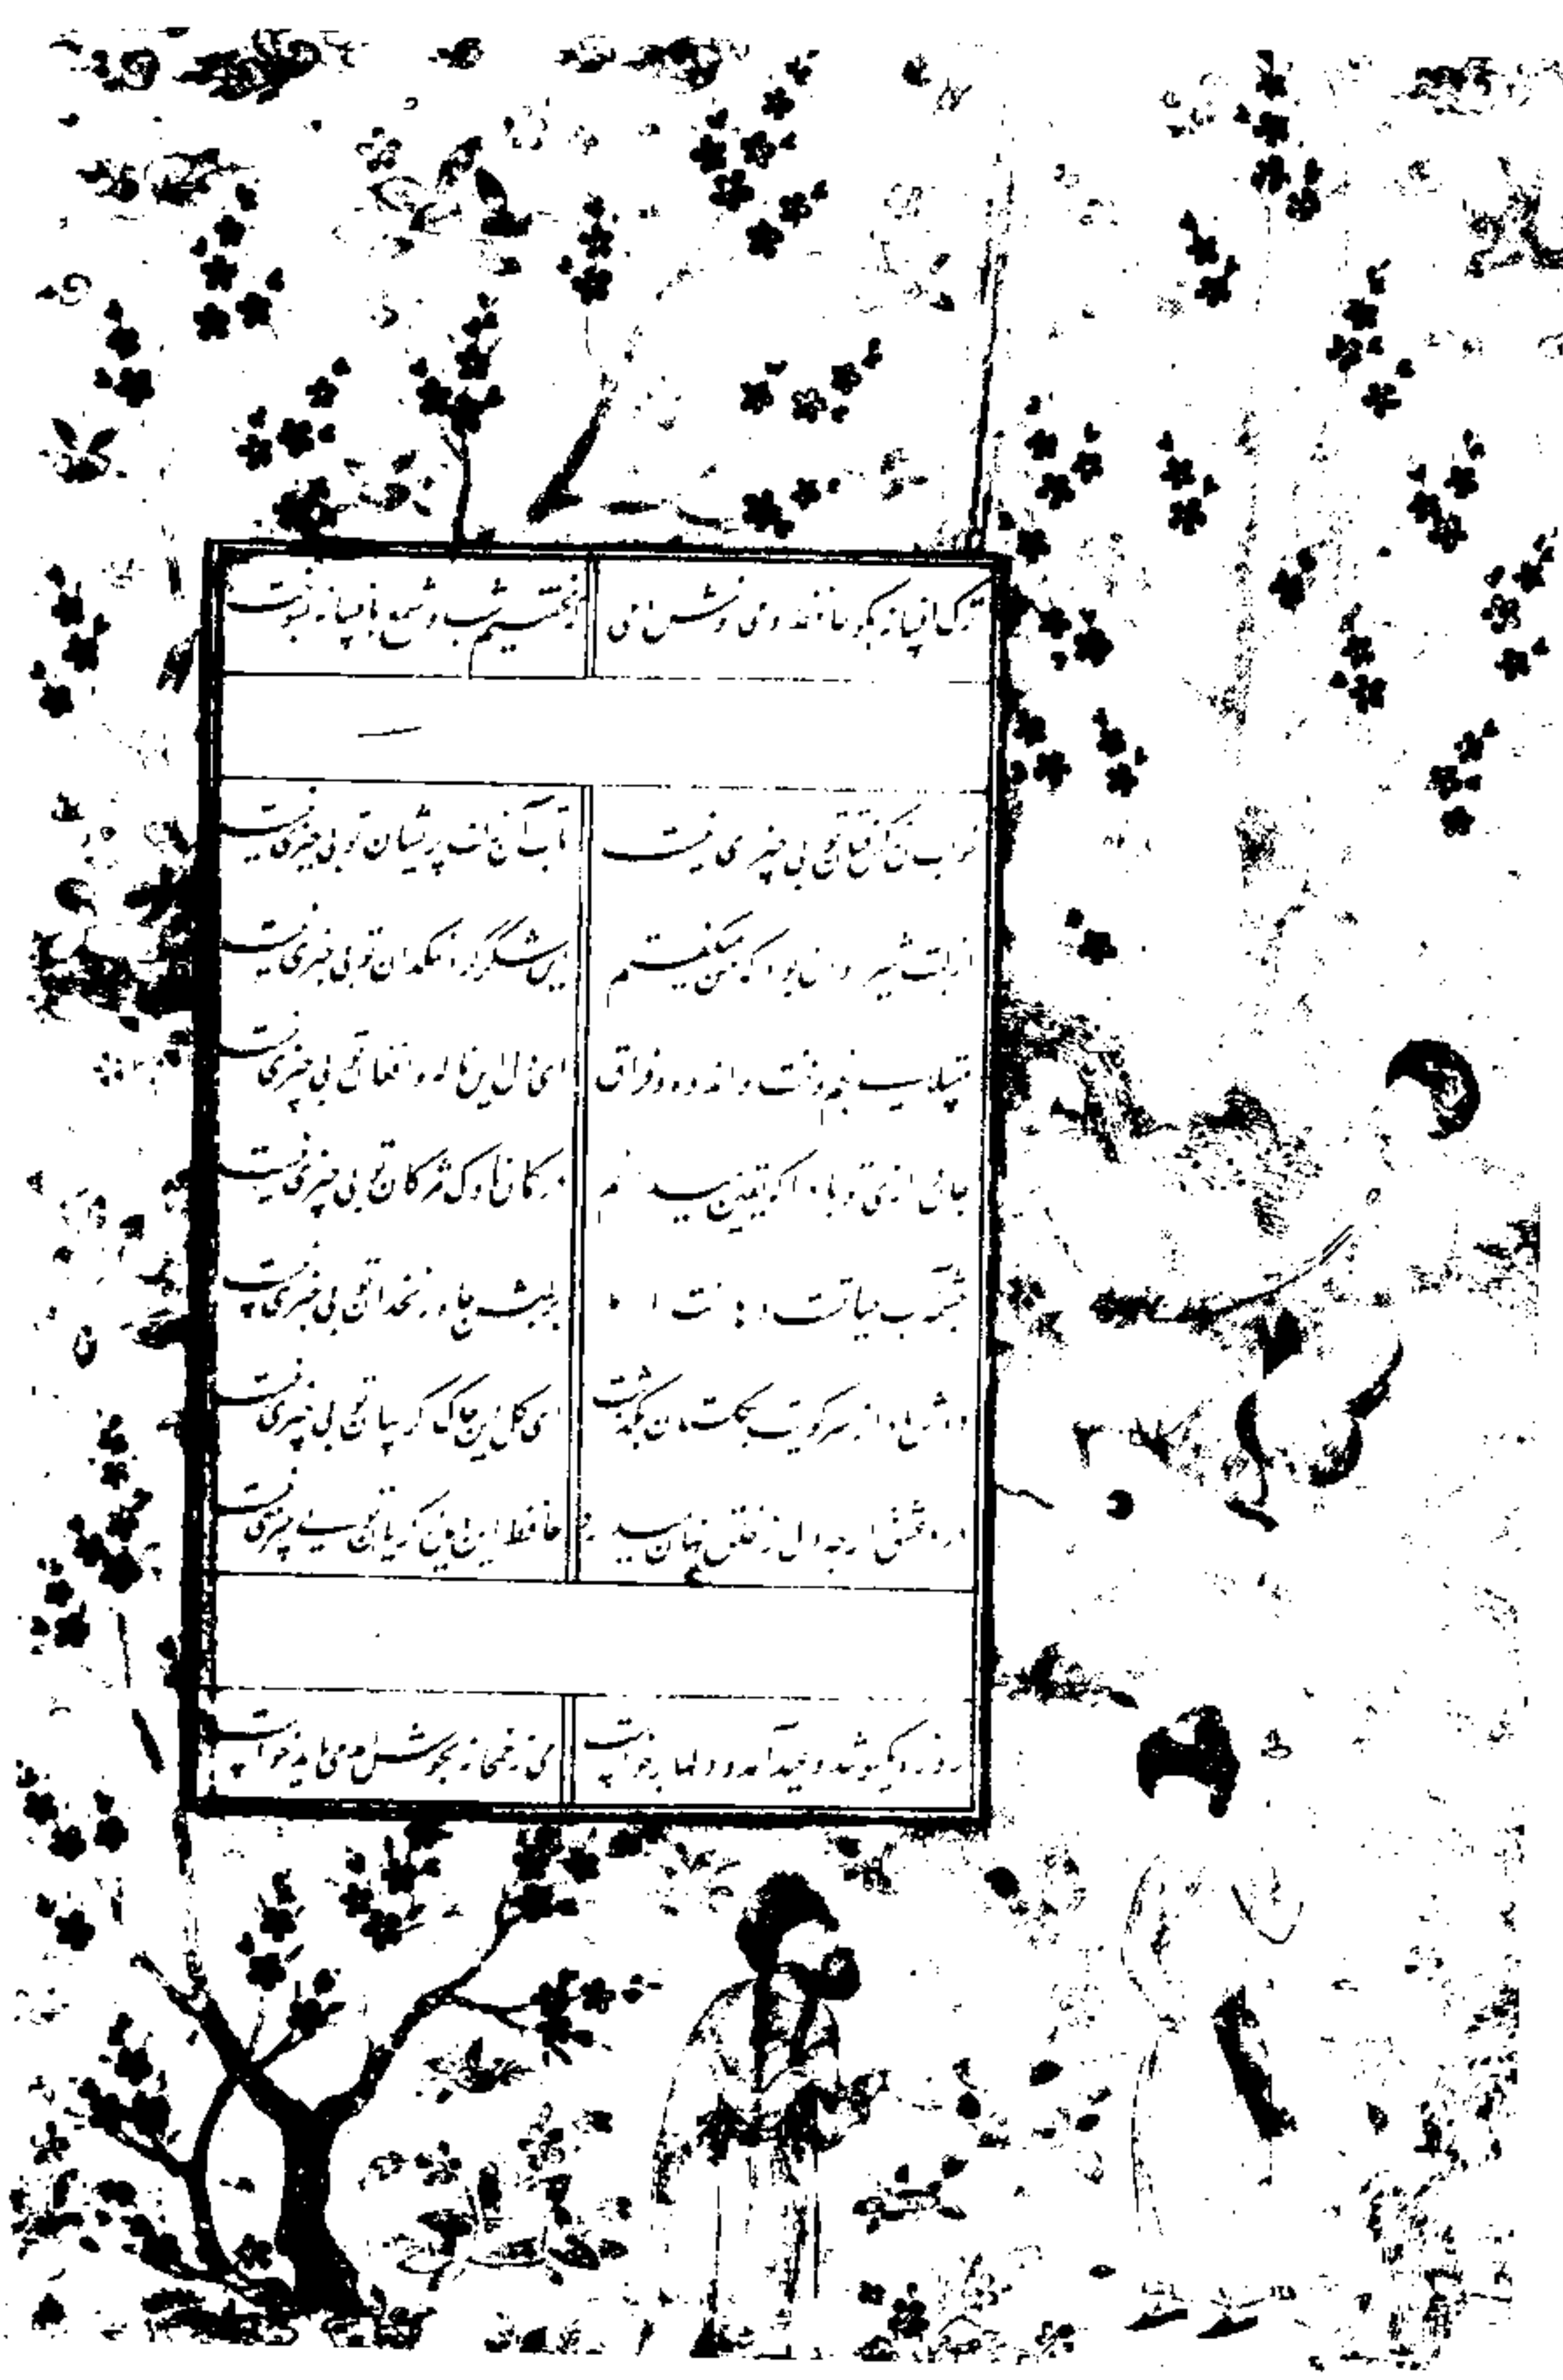 ترک افسانه بگو حافظ و می نوش دمی که نخفتیم شب و شمع بافسانه بسوخت
خواب آن نرگس فتان تو بی چیزی نیست تاب آن زلف پریشان تو بی چیزی نیست
از لبت شیر روان بود که من میگفتم این شکر گرد نمکدان تو بی چیزی نیست
مبتلایی بغم و محنت و اندوه و فراق ای دل این ناله و افغان تو بی چیزی نیست
جان درازی تو بادا که یقین میدانم در کمان ناوک مژگان تو بی چیزی نیست
چشمه آب حیاتست دهانت اما بر لبش چاه زنخدان تو بی چیزی نیست
دوش باد از سر کویت بگلستان بگذشت ای گل این چاک گریبان تو بی چیزی نیست
درد عشق ارچه دل از خلق نهان میدارد حافظ این دیده گریان تو بی چیزی نیست
روزه یکسو شد و عید آمد و دلها برخواست می ز خمخانه بجوش آمد و می باید خواست